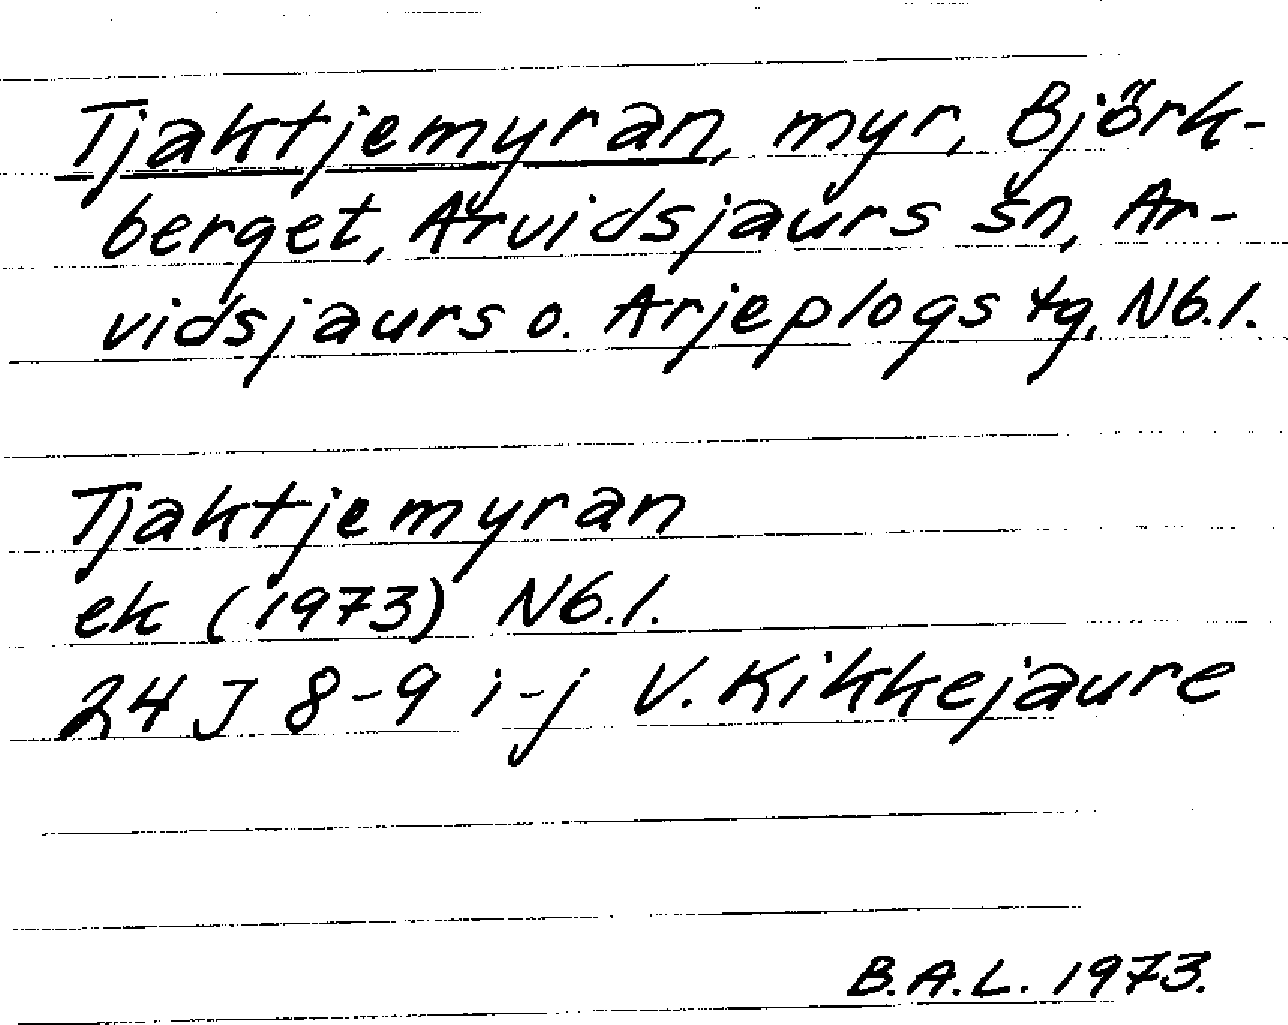 Tjaktjemyran, myr, Björk-
berget, Arvidsjaurs sn, Ar-
vidsjaurs o. Arjeplogs tg, Nb.l.
Tjaktjemyran
ek (1973) Nb.l.
24 J 8-9 i-j V. Kikkejaure
B.A.L. 1973.